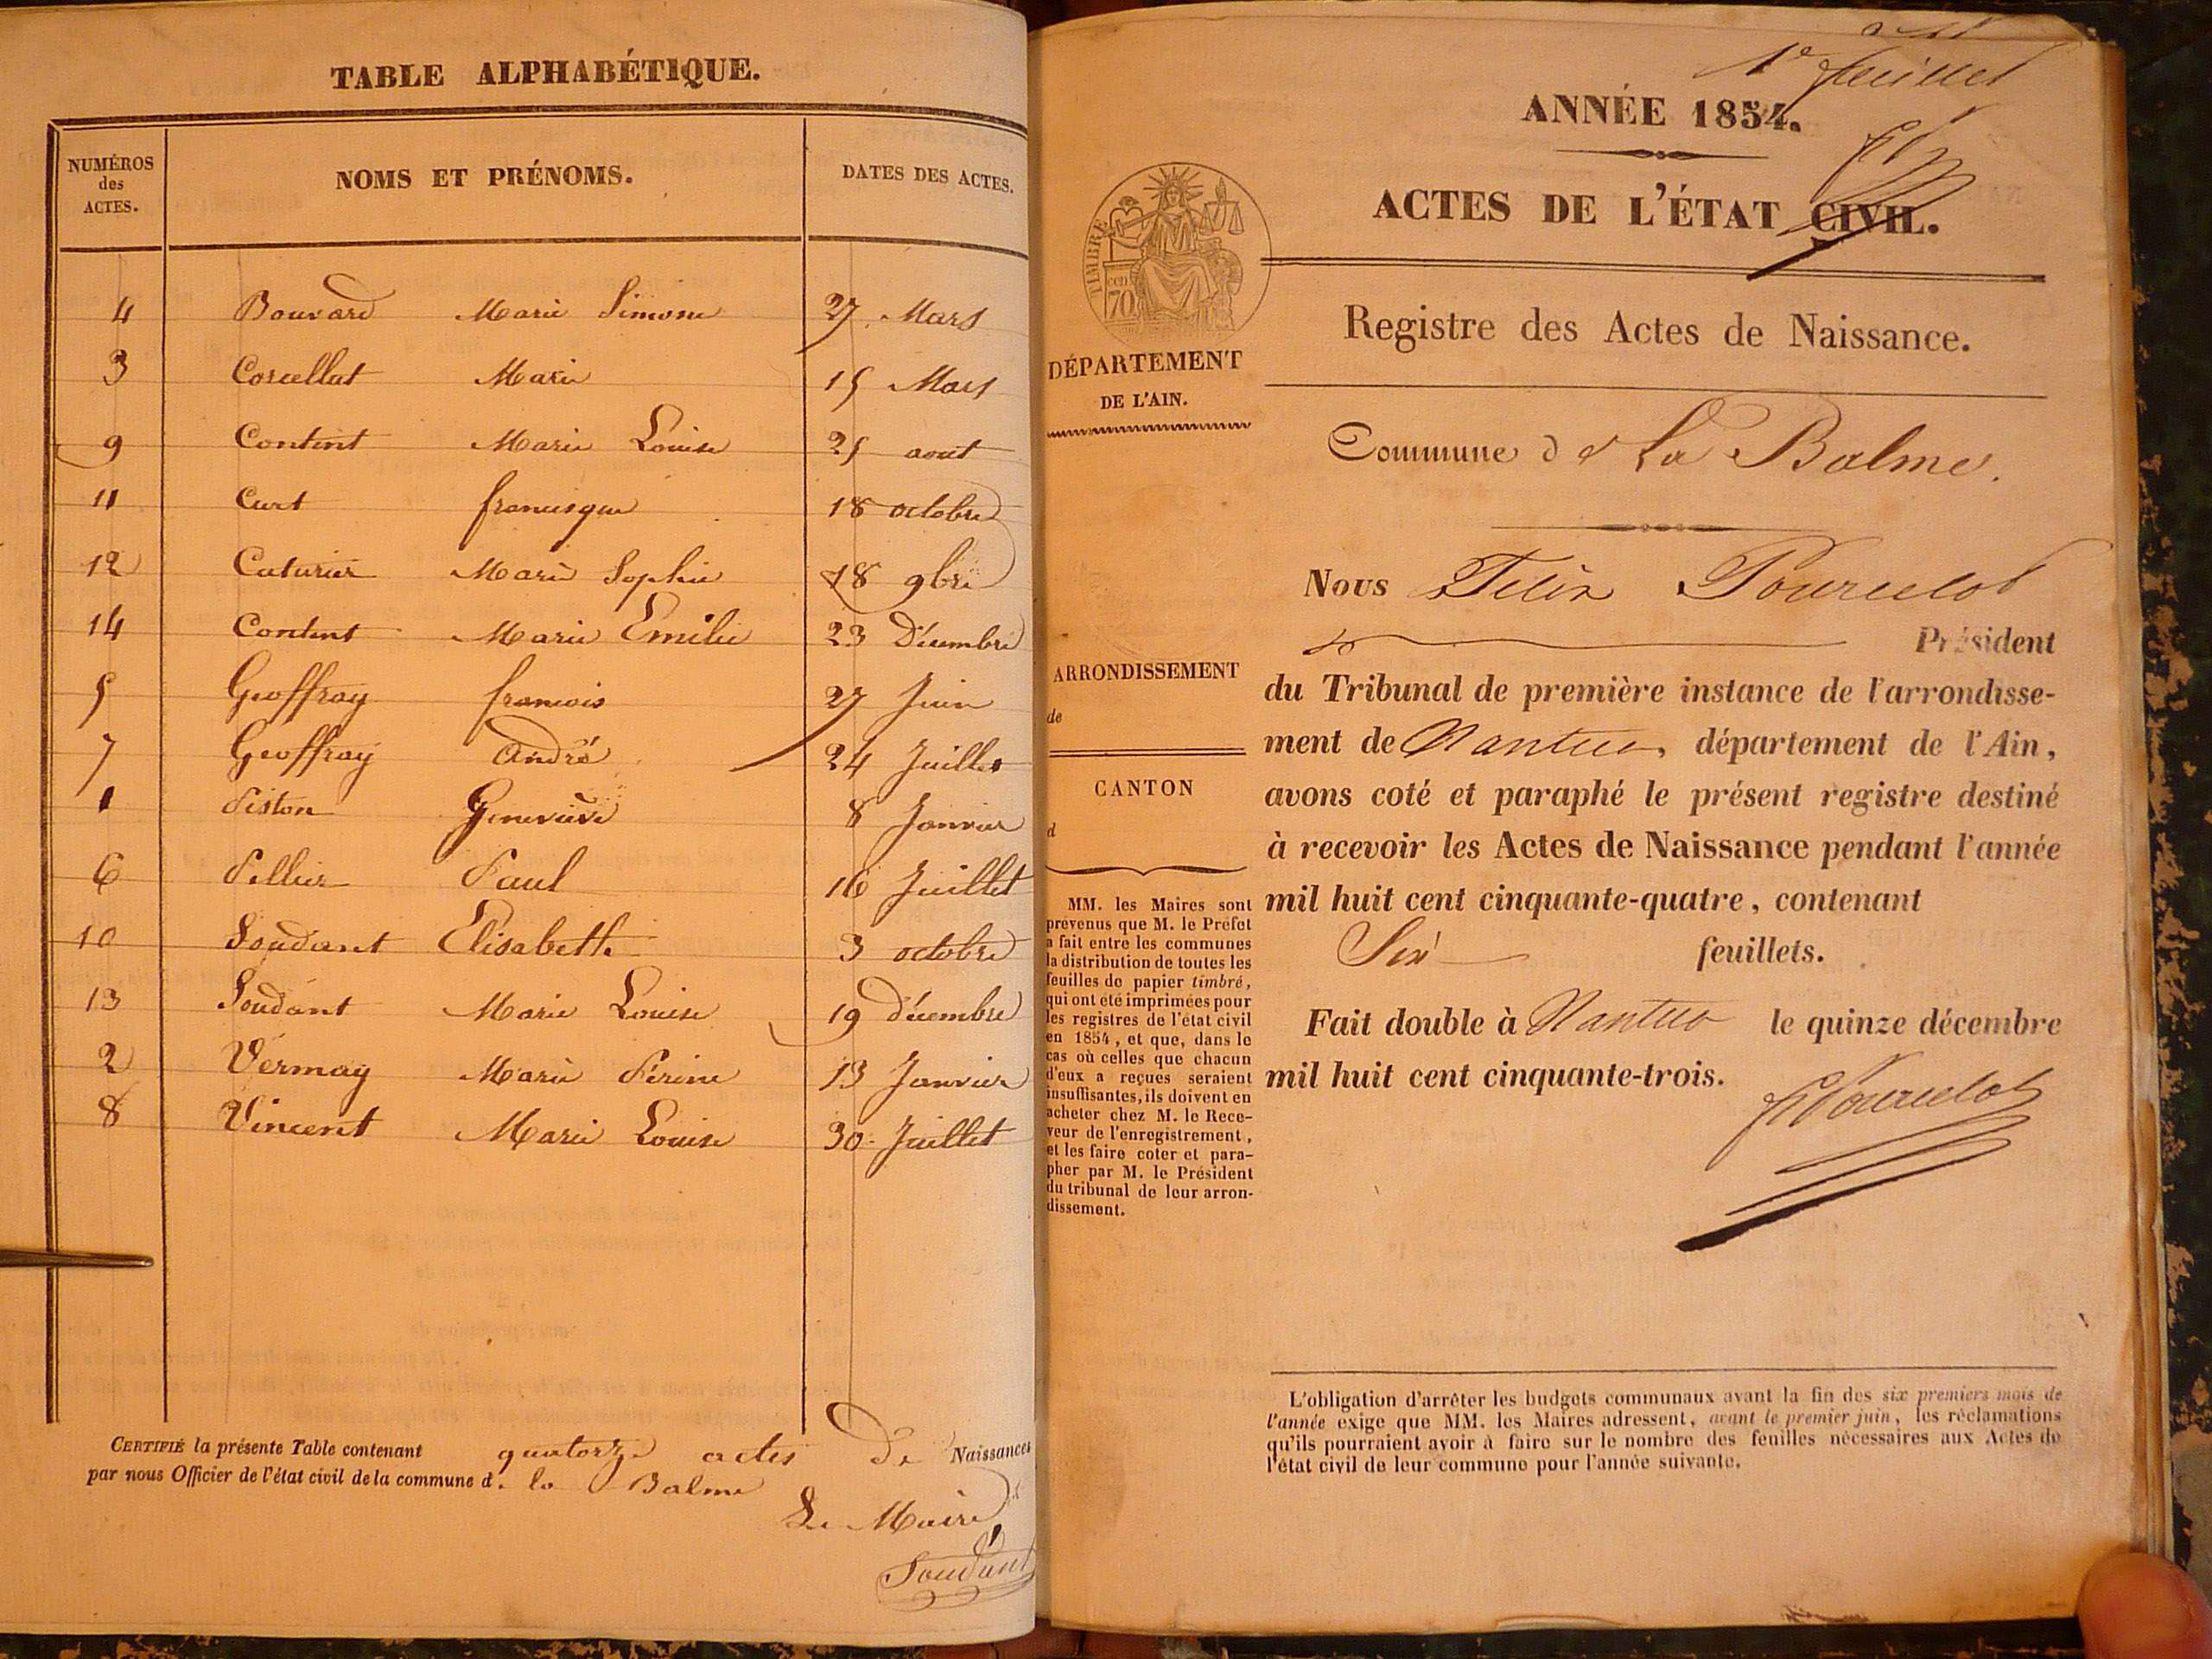 TABLE ALPHABÉTIQUE.
NUMÉROS
des
ACTES.
NOMS ET PRÉNOMS.
DATES DES ACTES.
4 Bouvard Marie Simone 27 Mars
3 Marie 15 Mars
9 Content Marie Louise 25 aout
11 Curt francisque 18 octobre
12 Marie Sophie 18 9bre
14 Content Marie Emilie 23 Décembre
5 Geoffray francois 27 Juin
7 Geoffray André 24 Juillet
1 Piston Geneviève 8 Janvier
6 Pellier Paul 16 Juillet
10 Soudant Elisabeth 3 octobre
13 Soudant Marie Louise 19 décembre
2 Vermay Marie Périne 13 Janvier
8 Vincent Marie Louise 30 Juillet
CERTIFIÉ la présente Table contenant quatorze actes De Naissances
par nous Officier de l'état civil de la commune d. la Balme
Le Maire
Soudant
1er feuillet
ANNÉE 1854.
ACTES DE L'ÉTAT CIVIL.
TIMBRE
cen
70
Registre des Actes de Naissance.
DÉPARTEMENT
DE L'AIN.
Commune de La Balme.
Nous Félix Pourcelot
Président
du Tribunal de première instance de l'arrondisse-
ment de Nantua, département de l'Ain,
avons coté et paraphé le présent registre destiné
à recevoir les Actes de Naissance pendant l'année
mil huit cent cinquante-quatre, contenant
Six feuillets.
Fait double à Nantua le quinze décembre
mil huit cent cinquante-trois.
Pourcelot
ARRONDISSEMENT
de
CANTON
d
MM. les Maires sont
prévenus que M. le Préfet
a fait entre les communes
la distribution de toutes les
feuilles de papier timbré,
qui ont été imprimées pour
les registres de l'état civil
en 1854, et que, dans le
cas où celles que chacun
d'eux a reçues seraient
insuffisantes, ils doivent en
acheter chez M. le Rece-
veur de l'enregistrement,
et les faire coter et para-
pher par M. le Président
du tribunal de leur arron-
dissement.
L'obligation d'arrêter les budgets communaux avant la fin des six premiers mois de
l'année exige que MM. les Maires adressent, avant le premier juin, les réclamations
qu'ils pourraient avoir à faire sur le nombre des feuilles nécessaires aux Actes de
l'état civil de leur commune pour l'année suivante.